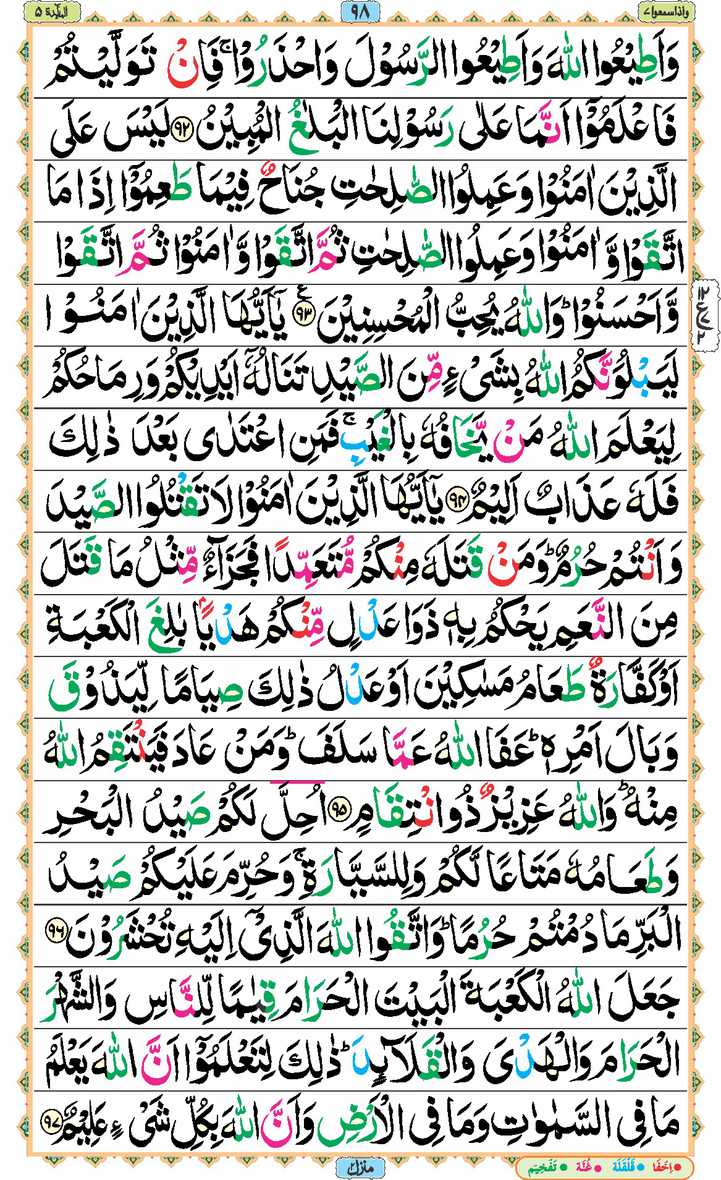 واذا سمعوا ٧ ٩٨ المآئدة ٥
وَاَطِيْعُوا اللّٰهَ وَاَطِيْعُوا الرَّسُوْلَ وَاحْذَرُوْا ۚ فَاِنْ تَوَلَّيْتُمْ
فَاعْلَمُوْۤا اَنَّمَا عَلٰى رَسُوْلِنَا الْبَلٰغُ الْمُبِيْنُ ﴿۹۲﴾ لَيْسَ عَلَى
الَّذِيْنَ اٰمَنُوْا وَعَمِلُوا الصّٰلِحٰتِ جُنَاحٌ فِيْمَا طَعِمُوْۤا اِذَا مَا
اتَّقَوْا وَّاٰمَنُوْا وَعَمِلُوا الصّٰلِحٰتِ ثُمَّ اتَّقَوْا وَّاٰمَنُوْا ثُمَّ اتَّقَوْا
وَّاَحْسَنُوْا ؕ وَاللّٰهُ يُحِبُّ الْمُحْسِنِيْنَ ﴿۹۳﴾ ع يٰۤاَيُّهَا الَّذِيْنَ اٰمَنُوْا
لَيَبْلُوَنَّكُمُ اللّٰهُ بِشَيْءٍ مِّنَ الصَّيْدِ تَنَالُهٗۤ اَيْدِيْكُمْ وَرِمَاحُكُمْ
لِيَعْلَمَ اللّٰهُ مَنْ يَّخَافُهٗ بِالْغَيْبِ ۚ فَمَنِ اعْتَدٰى بَعْدَ ذٰلِكَ
فَلَهٗ عَذَابٌ اَلِيْمٌ ﴿۹۴﴾ يٰۤاَيُّهَا الَّذِيْنَ اٰمَنُوْا لَا تَقْتُلُوا الصَّيْدَ
وَاَنْتُمْ حُرُمٌ ؕ وَمَنْ قَتَلَهٗ مِنْكُمْ مُّتَعَمِّدًا فَجَزَآءٌ مِّثْلُ مَا قَتَلَ
مِنَ النَّعَمِ يَحْكُمُ بِهٖ ذَوَا عَدْلٍ مِّنْكُمْ هَدْيًۢا بٰلِغَ الْكَعْبَةِ
اَوْ كَفَّارَةٌ طَعَامُ مَسٰكِيْنَ اَوْ عَدْلُ ذٰلِكَ صِيَامًا لِّيَذُوْقَ
وَبَالَ اَمْرِهٖ ؕ عَفَا اللّٰهُ عَمَّا سَلَفَ ؕ وَمَنْ عَادَ فَيَنْتَقِمُ اللّٰهُ
مِنْهُ ؕ وَاللّٰهُ عَزِيْزٌ ذُو انْتِقَامٍ ﴿۹۵﴾ اُحِلَّ لَكُمْ صَيْدُ الْبَحْرِ
وَطَعَامُهٗ مَتَاعًا لَّكُمْ وَلِلسَّيَّارَةِ ۚ وَحُرِّمَ عَلَيْكُمْ صَيْدُ
الْبَرِّ مَا دُمْتُمْ حُرُمًا ؕ وَاتَّقُوا اللّٰهَ الَّذِيْۤ اِلَيْهِ تُحْشَرُوْنَ ﴿۹۶﴾
جَعَلَ اللّٰهُ الْكَعْبَةَ الْبَيْتَ الْحَرَامَ قِيٰمًا لِّلنَّاسِ وَالشَّهْرَ
الْحَرَامَ وَالْهَدْيَ وَالْقَلَآئِدَ ؕ ذٰلِكَ لِتَعْلَمُوْۤا اَنَّ اللّٰهَ يَعْلَمُ
مَا فِي السَّمٰوٰتِ وَمَا فِي الْاَرْضِ وَاَنَّ اللّٰهَ بِكُلِّ شَيْءٍ عَلِيْمٌ ﴿۹۷﴾
منزل ٢
اِخْفَا قَلْقَلَة غُنَّة تَفْخِيْم